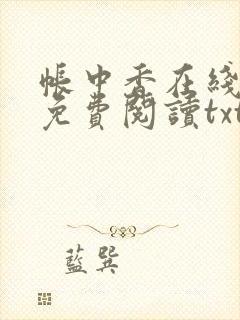 帳中香在綫
免費閱讀txt
藍巽